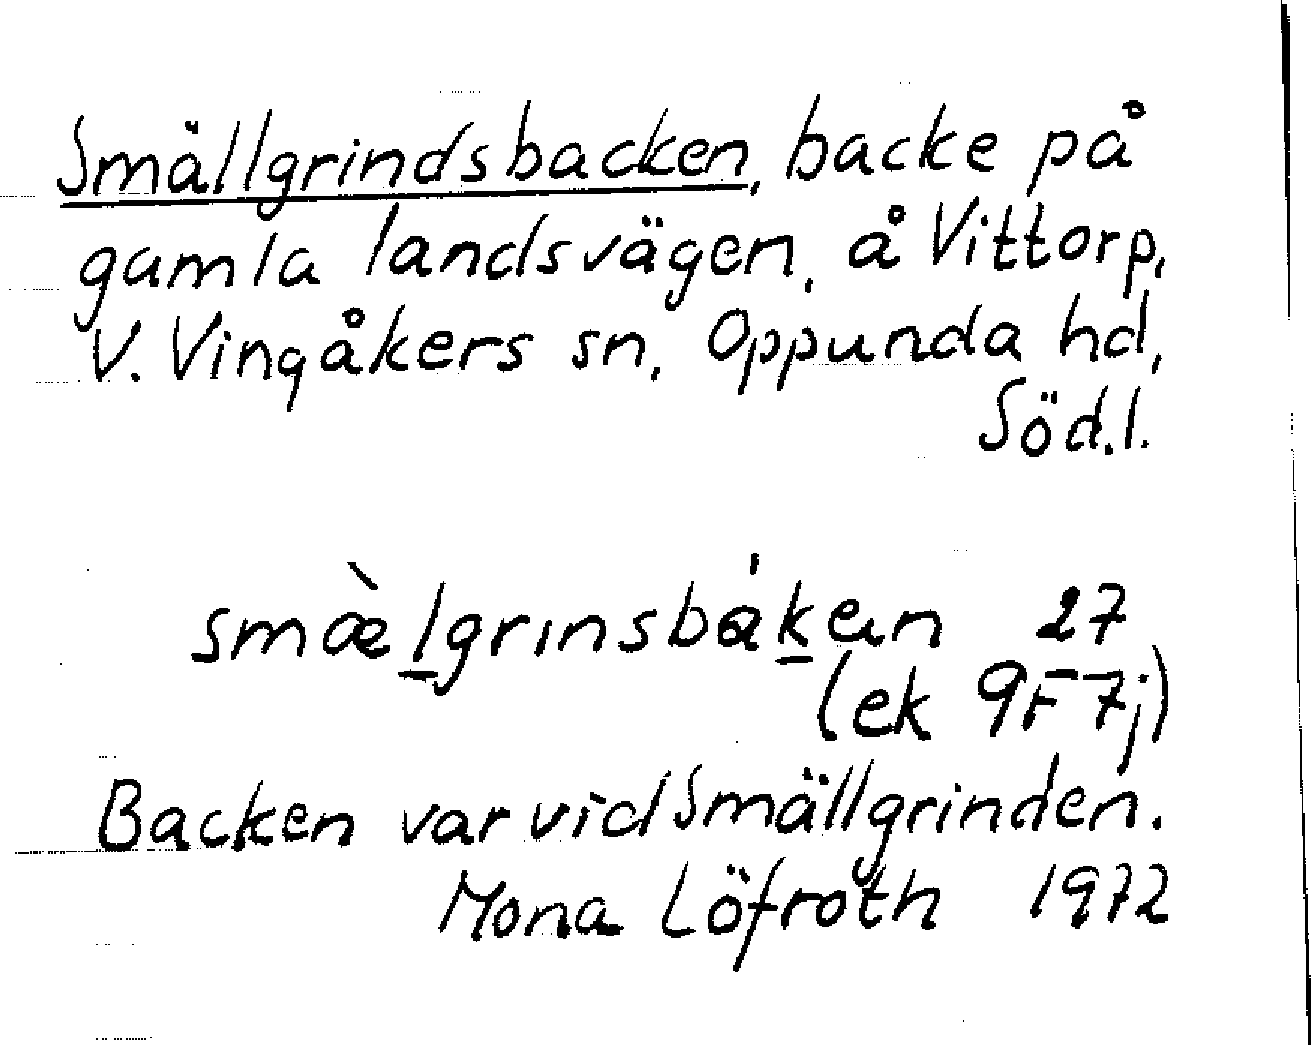 Smällgrindsbacken, backe på
gamla landsvägen, å Vittorp,
V. Vingåkers sn, Oppunda hd,
Söd.l.
smæ̀l̲grınsbák̲en 27
(ek 9F 7j)
Backen var vid Smällgrinden.
Mona Löfroth 1972